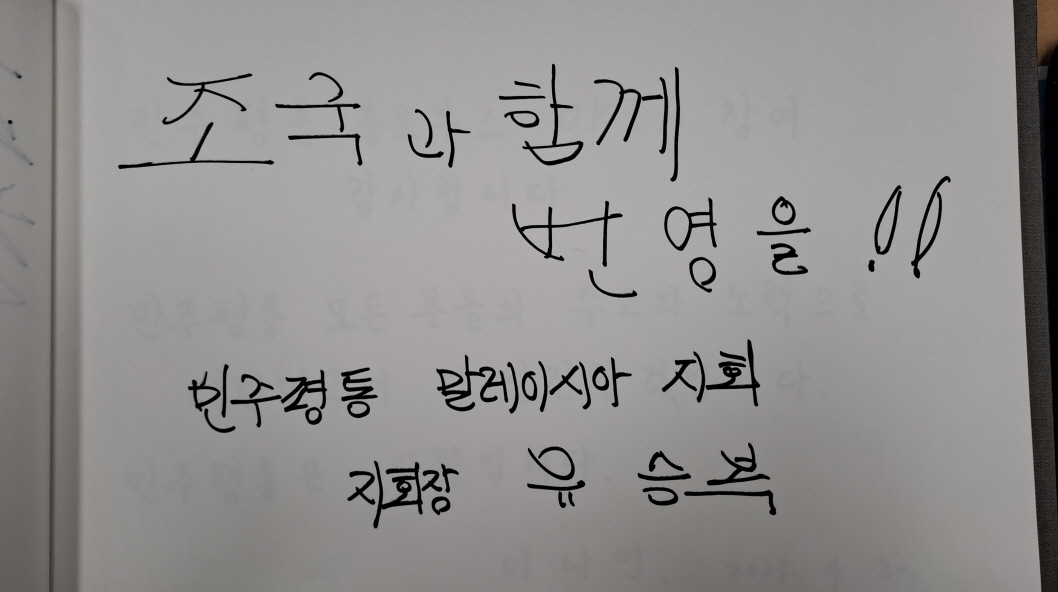 조국과 함께
번영을 !!
민주평통 말레이시아 지회
지회장 유승복